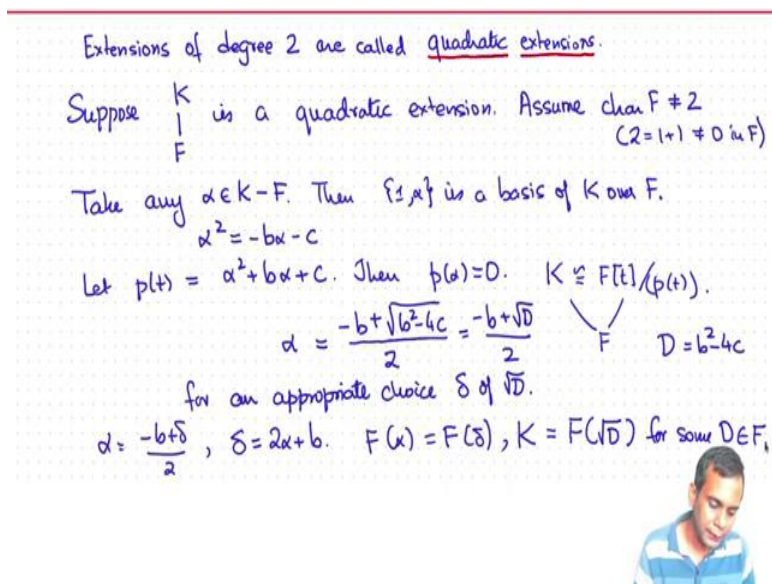 Extensions of degree 2 are called quadratic extensions.
Suppose K | F is a quadratic extension. Assume char F ≠ 2
(2 = 1+1 ≠ 0 in F)
Take any α ∈ K-F. Then {1,α} is a basis of K over F.
α² = -bα - c
Let p(t) = α² + bα + c. Then p(α) = 0. K ≅ F[t]/(p(t)).
α = (-b+√(b²-4c))/2 = (-b+√D)/2 F D = b²-4c
for an appropriate choice δ of √D.
α = (-b+δ)/2 , δ = 2α+b. F(α) = F(δ), K = F(√D) for some D ∈ F.